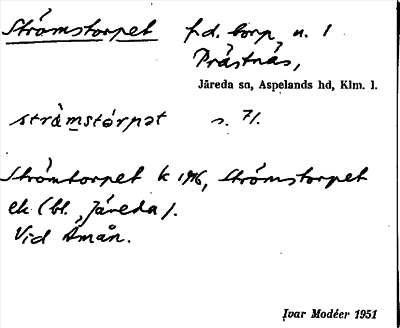 Strömstorpet f.d. torp u. 1
Prästnäs,
Järeda sn, Aspelands hd, Klm. l.
strø̀mstórpət s. 71.
Strömtorpet k 1916, Strömstorpet
ek (bl. Järeda).
Vid Åmån.
Ivar Modéer 1951